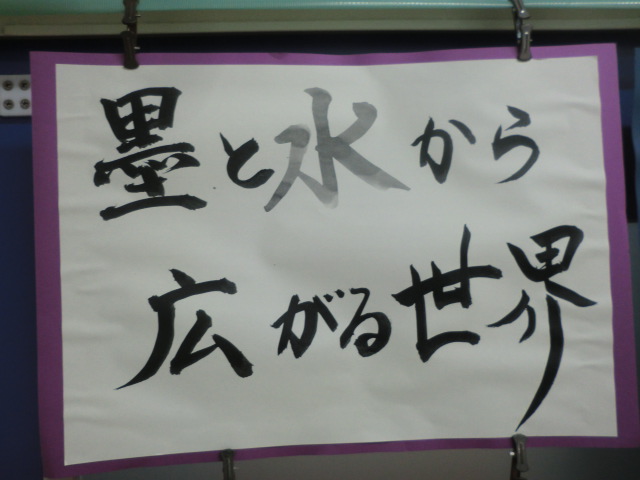 墨と水から
広がる世界